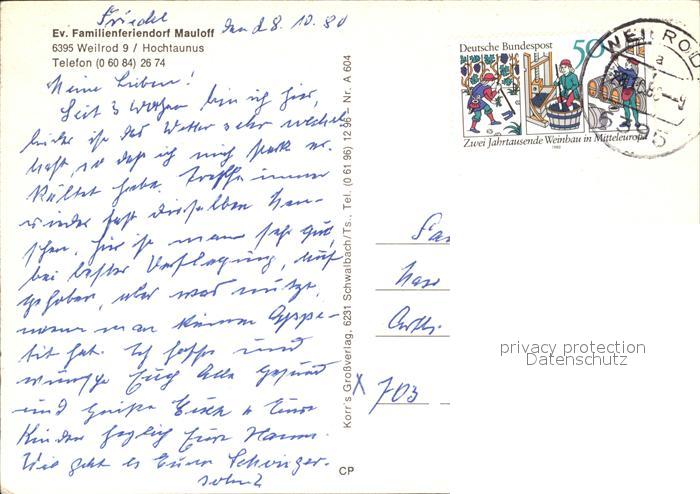 Friedel
Ev. Familienferiendorf Mauloff
6395 Weilrod 9 / Hochtaunus
Telefon (0 60 84) 26 74
den 28.10.80
Meine Lieben!
Seit 3 Wochen bin ich hier,
leider ist das Wetter sehr wechsel
haft, so daß ich mich stark er-
kältet habe. Treffe immer
wieder fast dieselben Men-
schen. Hier ist man sehr gut
bei bester Verpflegung, auf
gehoben, aber was nützt,
wenn man keinen Appe-
tit hat. Ich hoffe und
wünsche Euch alle gesund
und grüße Euch u. Eure
Kinder herzlich Eure
Wie geht es Eurem Schwieger-
sohn?
Korr's Großverlag, 6231 Schwalbach/Ts., Tel. (0 61 96) 12 96 – Nr. A 604
CP
Deutsche Bundespost
50
Zwei Jahrtausende Weinbau in Mitteleuropa
1980
WEILROD
a
6395
703
privacy protection
Datenschutz